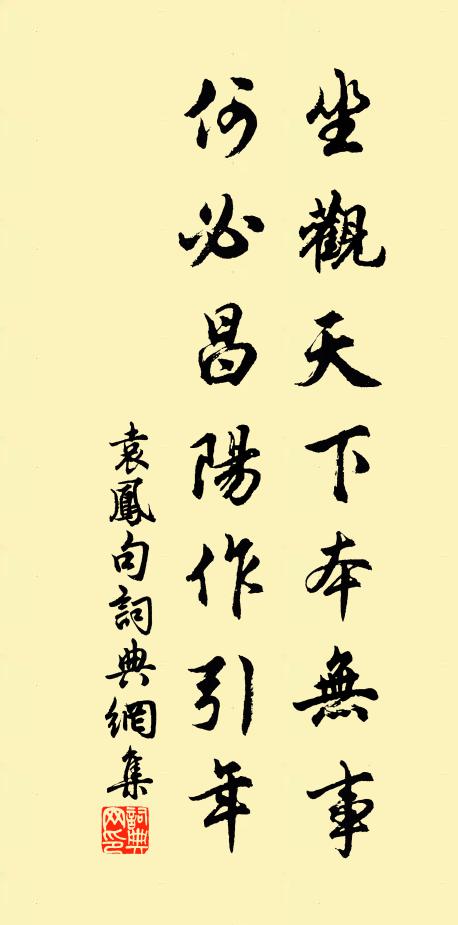 坐觀天下本無事
何必昌陽作引年
袁鳳句詞典網集
詞典网印